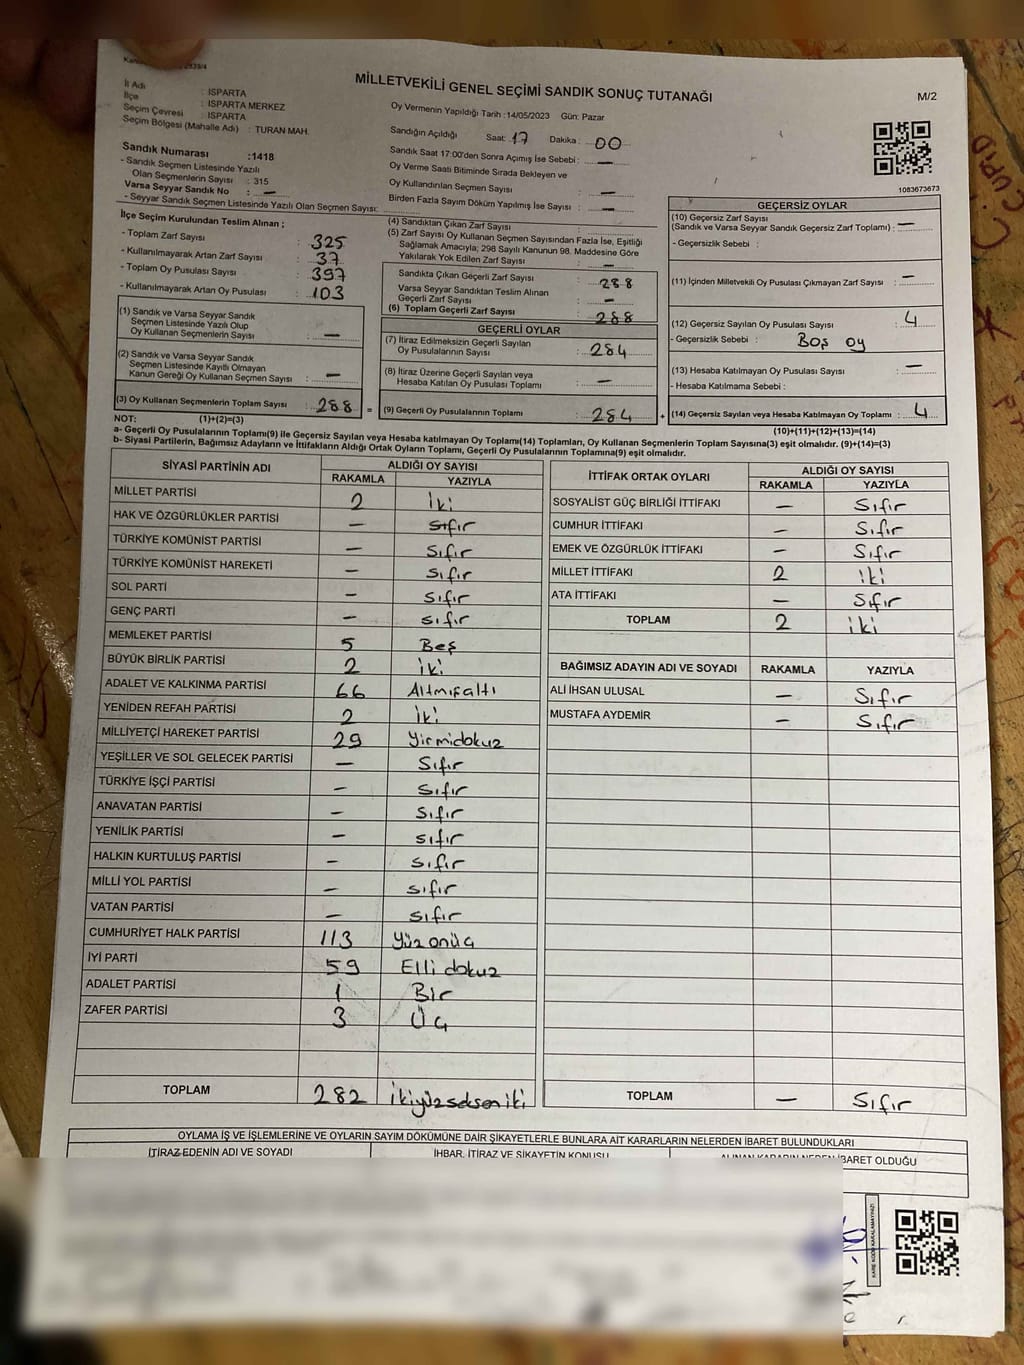 MİLLETVEKİLİ GENEL SEÇİMİ SANDIK SONUÇ TUTANAĞI
M/2
İl Adı : ISPARTA
İlçe : ISPARTA MERKEZ
Seçim Çevresi : ISPARTA
Seçim Bölgesi (Mahalle Adı) : TURAN MAH.
Sandık Numarası :1418
- Sandık Seçmen Listesinde Yazılı
Olan Seçmenlerin Sayısı : 315
Varsa Seyyar Sandık No : —
- Seyyar Sandık Seçmen Listesinde Yazılı Olan Seçmen Sayısı:
Oy Vermenin Yapıldığı Tarih :14/05/2023 Gün: Pazar
Sandığın Açıldığı Saat: 17 Dakika : 00
Sandık Saat 17:00'den Sonra Açımış İse Sebebi : —
Oy Verme Saati Bitiminde Sırada Bekleyen ve
Oy Kullandırılan Seçmen Sayısı : —
Birden Fazla Sayım Döküm Yapılmış İse Sayısı : —
1083673673
İlçe Seçim Kurulundan Teslim Alınan ;
- Toplam Zarf Sayısı : 325
- Kullanılmayarak Artan Zarf Sayısı : 37
- Toplam Oy Pusulası Sayısı : 397
- Kullanılmayarak Artan Oy Pusulası : 103
(1) Sandık ve Varsa Seyyar Sandık
Seçmen Listesinde Yazılı Olup
Oy Kullanan Seçmenlerin Sayısı : —
(2) Sandık ve Varsa Seyyar Sandık
Seçmen Listesinde Kayıtlı Olmayan
Kanun Gereği Oy Kullanan Seçmen Sayısı : —
(3) Oy Kullanan Seçmenlerin Toplam Sayısı : 288 =
(4) Sandıktan Çıkan Zarf Sayısı :
(5) Zarf Sayısı Oy Kullanan Seçmen Sayısından Fazla İse, Eşitliği
Sağlamak Amacıyla; 298 Sayılı Kanunun 98. Maddesine Göre
Yakılarak Yok Edilen Zarf Sayısı : —
Sandıkta Çıkan Geçerli Zarf Sayısı : 288
Varsa Seyyar Sandıktan Teslim Alınan
Geçerli Zarf Sayısı : —
(6) Toplam Geçerli Zarf Sayısı : 288
GEÇERLİ OYLAR
(7) İtiraz Edilmeksizin Geçerli Sayılan
Oy Pusulalarının Sayısı : 284
(8) İtiraz Üzerine Geçerli Sayılan veya
Hesaba Katılan Oy Pusulası Toplamı : —
(9) Geçerli Oy Pusulalarının Toplamı : 284 +
GEÇERSİZ OYLAR
(10) Geçersiz Zarf Sayısı
(Sandık ve Varsa Seyyar Sandık Geçersiz Zarf Toplamı) : —
- Geçersizlik Sebebi :
(11) İçinden Milletvekili Oy Pusulası Çıkmayan Zarf Sayısı : —
(12) Geçersiz Sayılan Oy Pusulası Sayısı : 4
- Geçersizlik Sebebi : Boş oy
(13) Hesaba Katılmayan Oy Pusulası Sayısı : —
- Hesaba Katılmama Sebebi :
(14) Geçersiz Sayılan veya Hesaba Katılmayan Oy Toplamı : 4
NOT: (1)+(2)=(3) (10)+(11)+(12)+(13)=(14)
a- Geçerli Oy Pusulalarının Toplamı(9) ile Geçersiz Sayılan veya Hesaba katılmayan Oy Toplamı(14) Toplamları, Oy Kullanan Seçmenlerin Toplam Sayısına(3) eşit olmalıdır. (9)+(14)=(3)
b- Siyasi Partilerin, Bağımsız Adayların ve İttifakların Aldığı Ortak Oyların Toplamı, Geçerli Oy Pusulalarının Toplamına(9) eşit olmalıdır.
SİYASİ PARTİNİN ADI ALDIĞI OY SAYISI
RAKAMLA YAZIYLA
MİLLET PARTİSİ 2 iki
HAK VE ÖZGÜRLÜKLER PARTİSİ — sıfır
TÜRKİYE KOMÜNİST PARTİSİ — Sıfır
TÜRKİYE KOMÜNİST HAREKETİ — sıfır
SOL PARTİ — sıfır
GENÇ PARTİ — sıfır
MEMLEKET PARTİSİ 5 Beş
BÜYÜK BİRLİK PARTİSİ 2 iki
ADALET VE KALKINMA PARTİSİ 66 Altmışaltı
YENİDEN REFAH PARTİSİ 2 iki
MİLLİYETÇİ HAREKET PARTİSİ 29 Yirmidokuz
YEŞİLLER VE SOL GELECEK PARTİSİ — Sıfır
TÜRKİYE İŞÇİ PARTİSİ — Sıfır
ANAVATAN PARTİSİ — Sıfır
YENİLİK PARTİSİ — sıfır
HALKIN KURTULUŞ PARTİSİ — sıfır
MİLLİ YOL PARTİSİ — sıfır
VATAN PARTİSİ — sıfır
CUMHURİYET HALK PARTİSİ 113 Yüzonüç
İYİ PARTİ 59 Elli dokuz
ADALET PARTİSİ 1 Bir
ZAFER PARTİSİ 3 Üç
TOPLAM 282 ikiyüzseksen iki
İTTİFAK ORTAK OYLARI ALDIĞI OY SAYISI
RAKAMLA YAZIYLA
SOSYALİST GÜÇ BİRLİĞİ İTTİFAKI — Sıfır
CUMHUR İTTİFAKI — Sıfır
EMEK VE ÖZGÜRLÜK İTTİFAKI — Sıfır
MİLLET İTTİFAKI 2 iki
ATA İTTİFAKI — Sıfır
TOPLAM 2 iki
BAĞIMSIZ ADAYIN ADI VE SOYADI RAKAMLA YAZIYLA
ALİ İHSAN ULUSAL — Sıfır
MUSTAFA AYDEMİR — Sıfır
TOPLAM — Sıfır
OYLAMA İŞ VE İŞLEMLERİNE VE OYLARIN SAYIM DÖKÜMÜNE DAİR ŞİKAYETLERLE BUNLARA AİT KARARLARIN NELERDEN İBARET BULUNDUKLARI
İTİRAZ EDENİN ADI VE SOYADI İHBAR, İTİRAZ VE ŞİKAYETİN KONUSU ALINAN KARARIN NEDEN İBARET OLDUĞU
KARE KODU KARALAMAYINIZ!